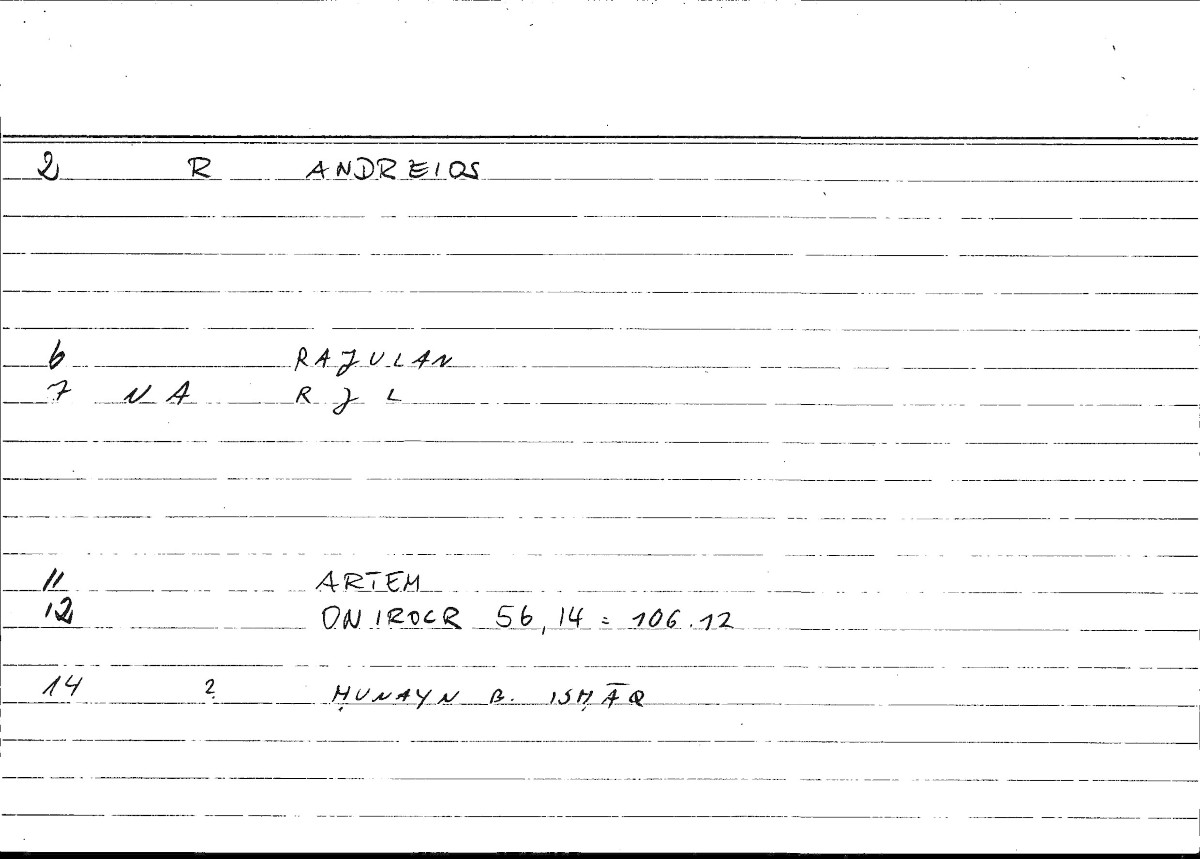 2 R ANDREIOS
6 RAJULAN
7 N A R J L
11 ARTEM
12 ONIROCR 56,14 = 106.12
14 ? ḤUNAYN B. ISḤĀQ